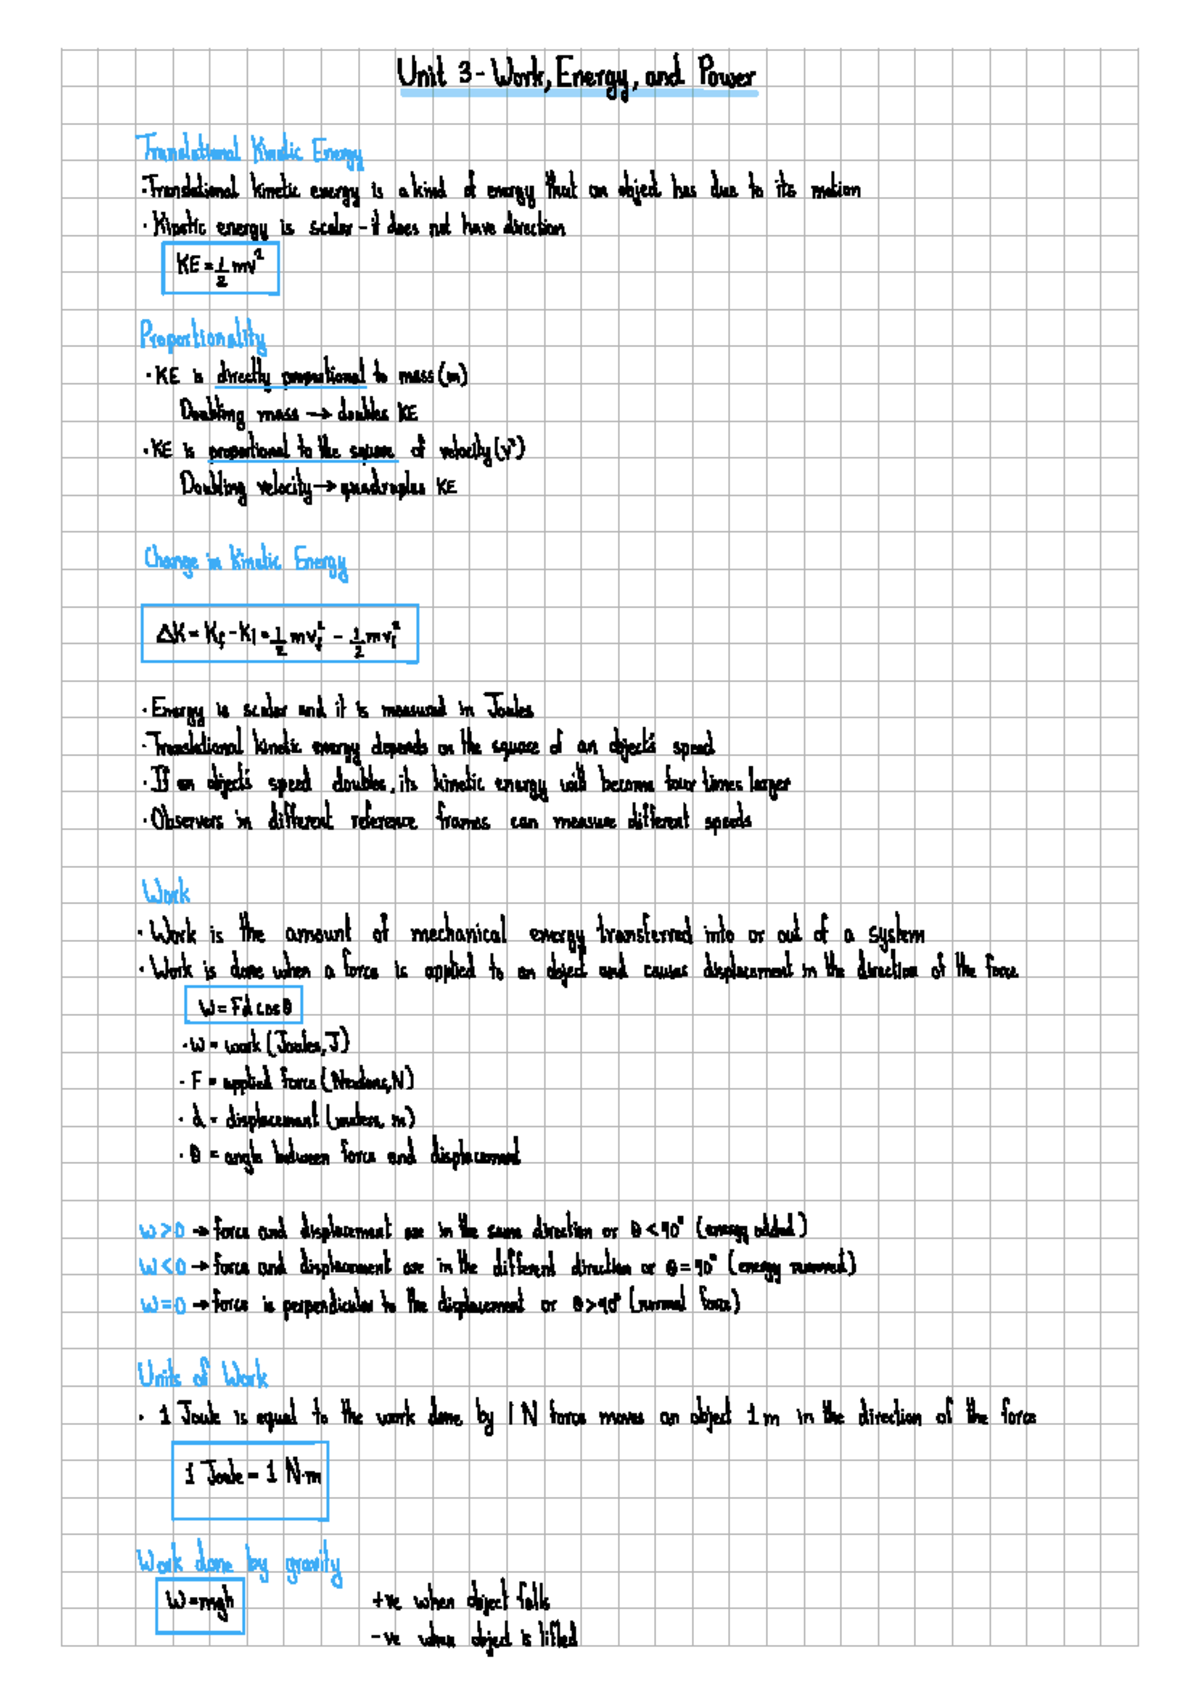 Unit 3 - Work, Energy, and Power
Translational Kinetic Energy
·Translational kinetic energy is a kind of energy that an object has due to its motion
· Kinetic energy is scalar - it does not have direction
KE = 1/2 mv²
Proportionality
· KE is directly proportional to mass (m)
Doubling mass → doubles KE
· KE is proportional to the square of velocity (v²)
Doubling velocity → quadruples KE
Change in Kinetic Energy
ΔK = Kf - Ki = 1/2 mvf² - 1/2 mvi²
· Energy is scalar and it is measured in Joules
· Translational kinetic energy depends on the square of an object's speed
· If an object's speed doubles, its kinetic energy will become four times larger
· Observers in different reference frames can measure different speeds
Work
· Work is the amount of mechanical energy transferred into or out of a system
· Work is done when a force is applied to an object and causes displacement in the direction of the force
W = Fd cos θ
· W = work (Joules, J)
· F = applied force (Newtons, N)
· d = displacement (meters, m)
· θ = angle between force and displacement
W > 0 → force and displacement are in the same direction or θ < 90° (energy added)
W < 0 → force and displacement are in the different direction or θ = 90° (energy removed)
W = 0 → force is perpendicular to the displacement or θ > 90° (normal force)
Units of Work
· 1 Joule is equal to the work done by 1 N force moves an object 1 m in the direction of the force
1 Joule = 1 N·m
Work done by gravity
W = mgh +ve when object falls
-ve when object is lifted